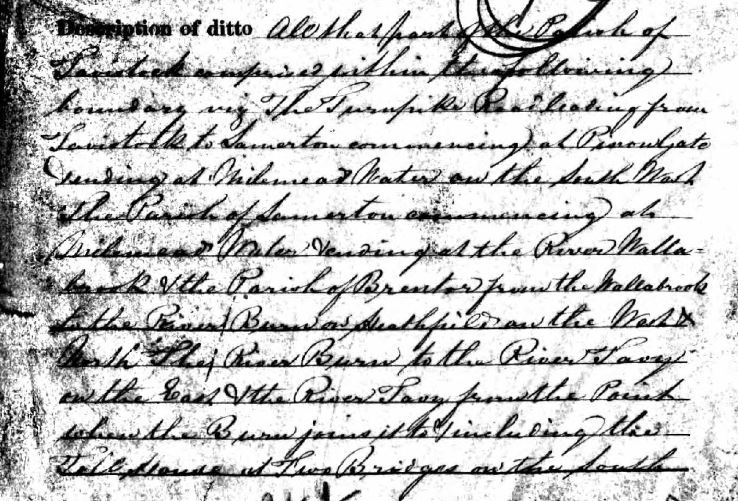 Description of ditto All that part of the Parish of
Tavistock comprised within the following
boundary viz The Turnpike Road leading from
Tavistock to Lamerton commencing at Gate
& ending at Water on the South West
The Parish of Lamerton commencing at
Water & ending at the River Walla=
brook & the Parish of Brentor from the Wallabrook
to the River Burn on Heathfield on the West &
North The River Burn to the River Tavy
on the East & the River Tavy from the Point
when the Burn joins it to & including the
Toll House at Two Bridges on the South